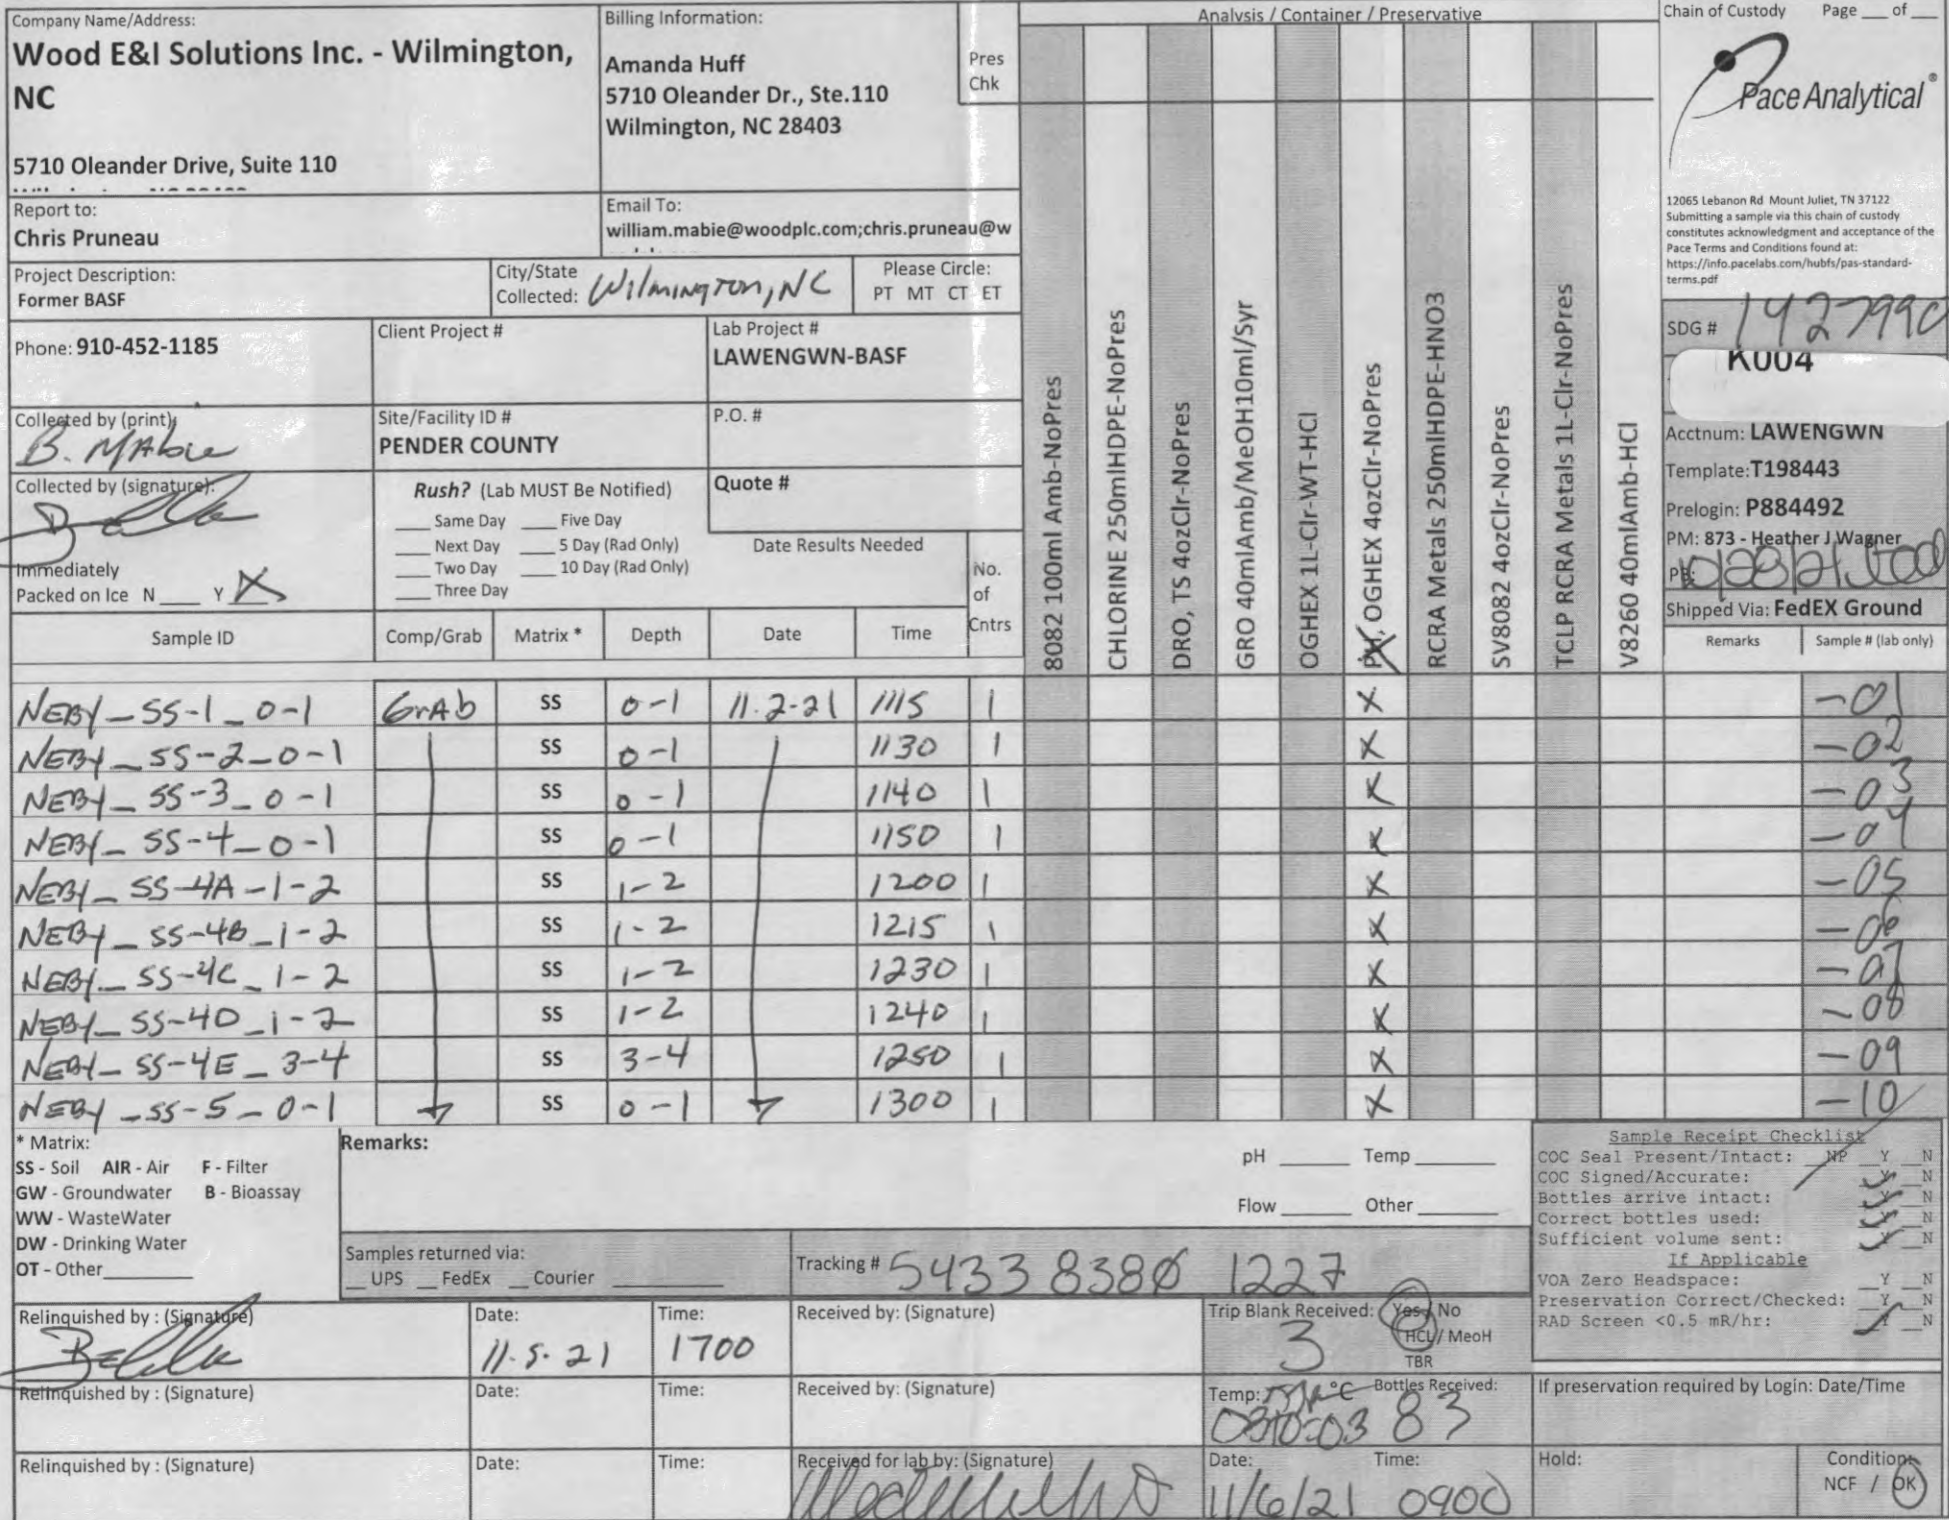 Company Name/Address:
Wood E&I Solutions Inc. - Wilmington,
NC
5710 Oleander Drive, Suite 110
Billing Information:
Amanda Huff
5710 Oleander Dr., Ste.110
Wilmington, NC 28403
Pres
Chk
Analysis / Container / Preservative
Chain of Custody Page ___ of ___
Pace Analytical®
12065 Lebanon Rd Mount Juliet, TN 37122
Submitting a sample via this chain of custody
constitutes acknowledgment and acceptance of the
Pace Terms and Conditions found at:
https://info.pacelabs.com/hubfs/pas-standard-
terms.pdf
Report to:
Chris Pruneau
Email To:
william.mabie@woodplc.com;chris.pruneau@w
Project Description:
Former BASF
City/State
Collected: Wilmington, NC
Please Circle:
PT MT CT ET
Phone: 910-452-1185
Client Project #
Lab Project #
LAWENGWN-BASF
Collected by (print):
B. Mabie
Site/Facility ID #
PENDER COUNTY
P.O. #
Collected by (signature):
Rush? (Lab MUST Be Notified)
___ Same Day ___ Five Day
___ Next Day ___ 5 Day (Rad Only)
___ Two Day ___ 10 Day (Rad Only)
___ Three Day
Quote #
Date Results Needed
Immediately
Packed on Ice N ___ Y X
No.
of
Cntrs
8082 100ml Amb-NoPres
CHLORINE 250mlHDPE-NoPres
DRO, TS 4ozClr-NoPres
GRO 40mlAmb/MeOH10ml/Syr
OGHEX 1L-Clr-WT-HCl
PH, OGHEX 4ozClr-NoPres
RCRA Metals 250mlHDPE-HNO3
SV8082 4ozClr-NoPres
TCLP RCRA Metals 1L-Clr-NoPres
V8260 40mlAmb-HCl
SDG # 1427990
K004
Acctnum: LAWENGWN
Template:T198443
Prelogin: P884492
PM: 873 - Heather J Wagner
PB:
Shipped Via: FedEX Ground
Sample ID Comp/Grab Matrix * Depth Date Time Remarks Sample # (lab only)
NEBY_SS-1_0-1 GrAb SS 0-1 11-2-21 1115 1 X -01
NEBY_SS-2_0-1 SS 0-1 1130 1 X -02
NEBY_SS-3_0-1 SS 0-1 1140 1 X -03
NEBY_SS-4_0-1 SS 0-1 1150 1 X -04
NEBY_SS-4A-1-2 SS 1-2 1200 1 X -05
NEBY_SS-4B_1-2 SS 1-2 1215 1 X -06
NEBY_SS-4C_1-2 SS 1-2 1230 1 X -07
NEBY_SS-4D_1-2 SS 1-2 1240 1 X -08
NEBY_SS-4E_3-4 SS 3-4 1250 1 X -09
NEBY_SS-5_0-1 SS 0-1 1300 1 X -10
* Matrix:
SS - Soil AIR - Air F - Filter
GW - Groundwater B - Bioassay
WW - WasteWater
DW - Drinking Water
OT - Other___
Remarks:
pH ___ Temp ___
Flow ___ Other ___
Samples returned via:
__ UPS __ FedEx __ Courier ___
Tracking # 5433 8380 1227
Sample Receipt Checklist
COC Seal Present/Intact: NP Y N
COC Signed/Accurate: Y N
Bottles arrive intact: Y N
Correct bottles used: Y N
Sufficient volume sent: Y N
If Applicable
VOA Zero Headspace: Y N
Preservation Correct/Checked: Y N
RAD Screen <0.5 mR/hr: Y N
Relinquished by : (Signature)
Date: 11-5-21
Time: 1700
Received by: (Signature)
Trip Blank Received: Yes / No
3 HCL / MeoH
TBR
Relinquished by : (Signature)
Date:
Time:
Received by: (Signature)
Temp: °C Bottles Received:
83
If preservation required by Login: Date/Time
Relinquished by : (Signature)
Date:
Time:
Received for lab by: (Signature)
Date: 11/6/21
Time: 0900
Hold:
Condition:
NCF / OK